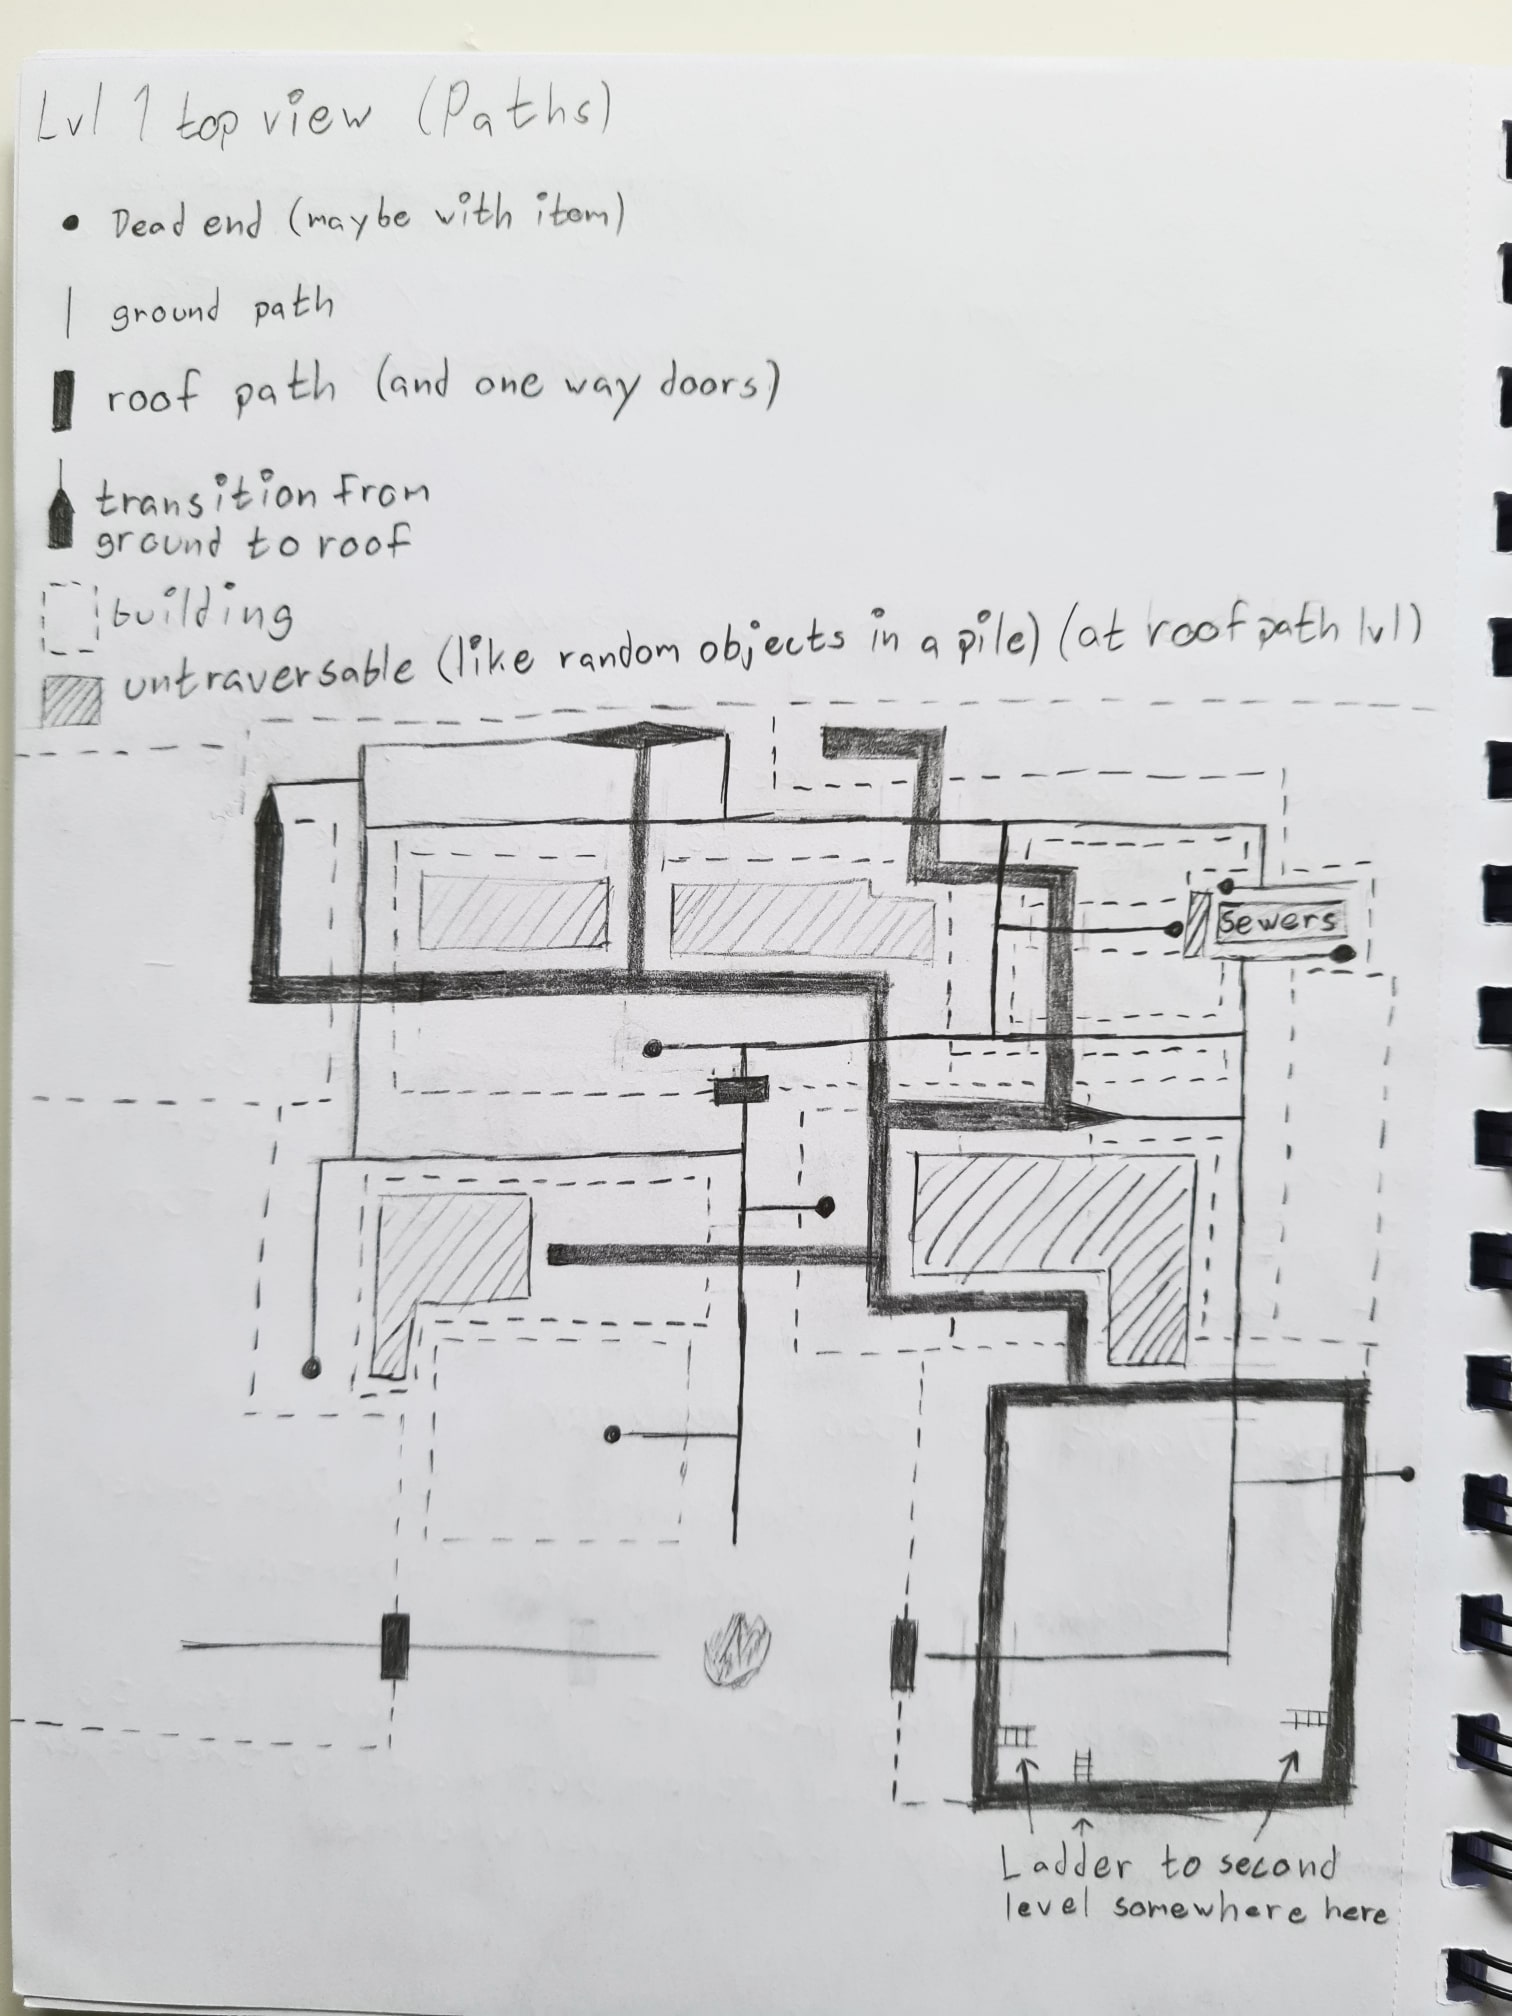 Lvl 1 top view (Paths)
Dead end (maybe with item)
ground path
roof path (and one way doors)
transition from
ground to roof
building
untraversable (like random objects in a pile) (at roof path lvl)
Sewers
Ladder to second
level somewhere here